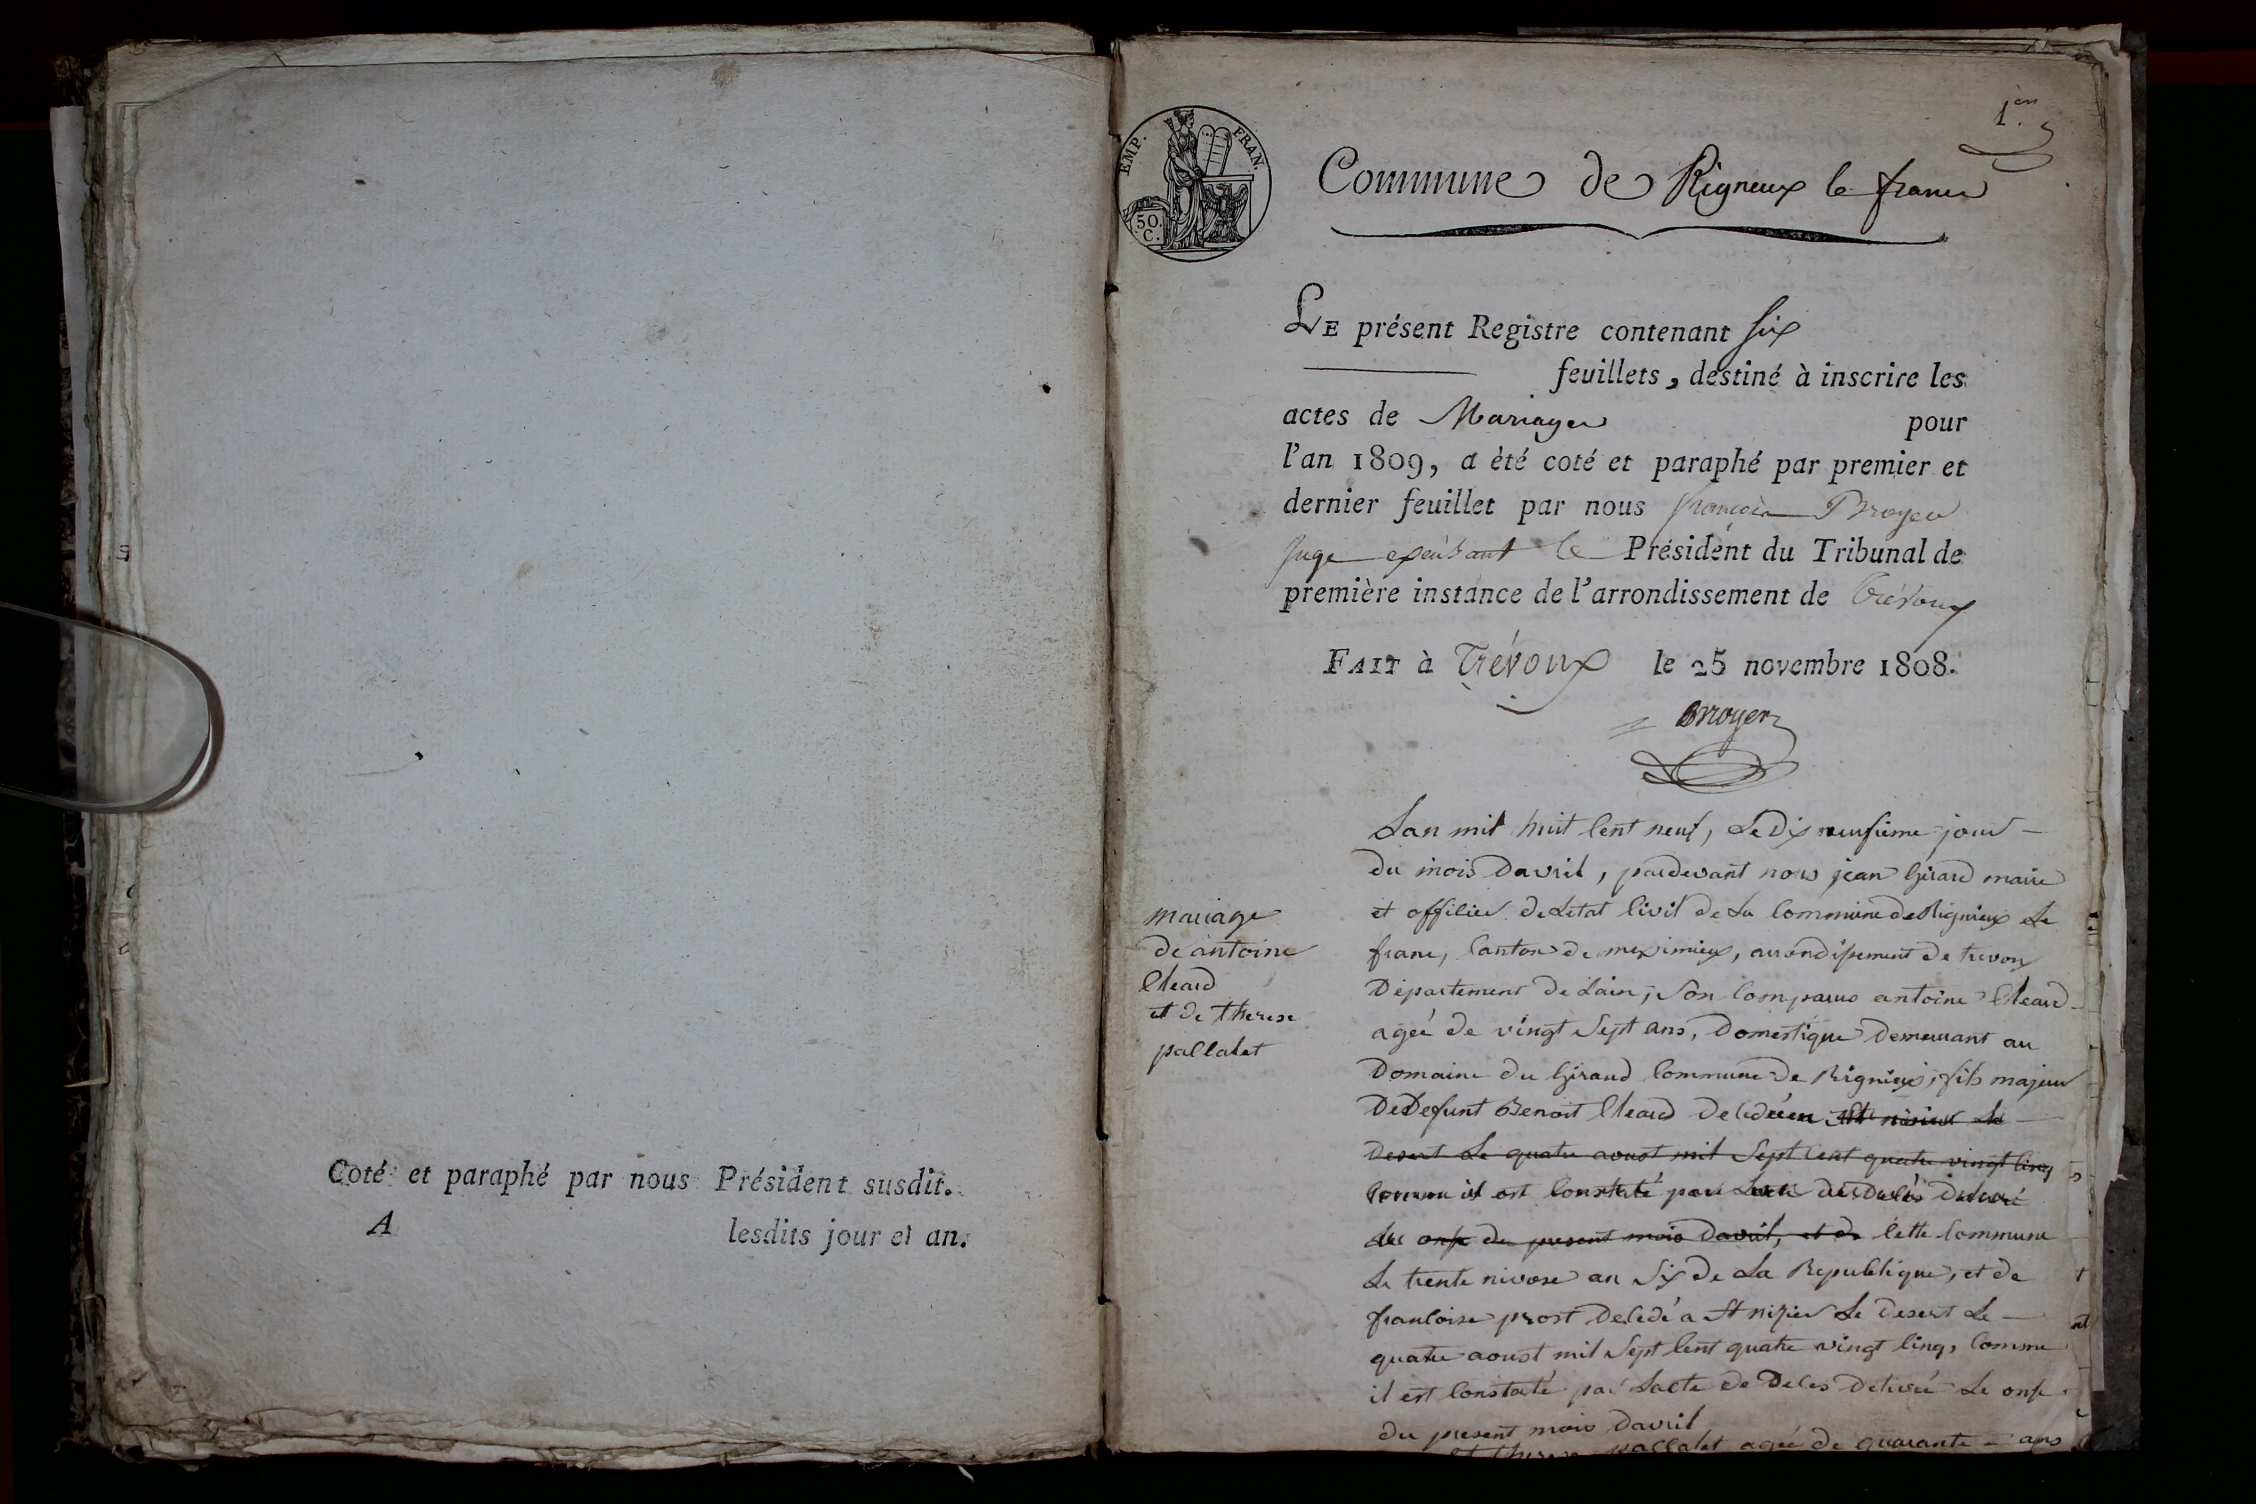 Coté et paraphé par nous Président susdit.
A lesdits jour et an.
1.er
EMP. FRAN.
50.
C.
Commune de Rigneux le franc
LE présent Registre contenant six
feuillets, destiné à inscrire les
actes de Mariages pour
l'an 1809, a été coté et paraphé par premier et
dernier feuillet par nous françois Broyer
Juge expéd.ant le Président du Tribunal de
première instance de l'arrondissement de Trévoux
FAIT à Trévoux le 25 novembre 1808.
Broyer
mariage
de antoine
Cleard
et de therese
pallatet
Lan mil huit Cent neuf, Le Dix neufieme jour
du mois Davril, pardevant nous jean Girard maire
et officier de Letat Civil de La Commune de Rignieux Le
franc, Canton de meximieux, arrondissement de trevoux
Département de Lain, Son Comparus antoine Cleard
ageé de vingt Sept ans, Domestique Demeurant au
Domaine du Giraud Commune de Rignieux, fils majeur
De Defunt Benoit Cleard Decedé en St nisier Le
Desert Le quatre aoust mil Sept Cent quatre vingt Cinq
Comme il est Constaté par Lacte de Decès Delivré
Le onze du present mois Davril, et de Cette Commune
Le trente nivose an Six de La Republique, et de
francoise prost Decedé a St nizier Le Desert Le
quatre aoust mil Sept Cent quatre vingt Cinq, Comme
il est Constaté par Lacte de Deces Delivré Le onze
du present mois Davril
et therese pallatet ageé de quarante ans